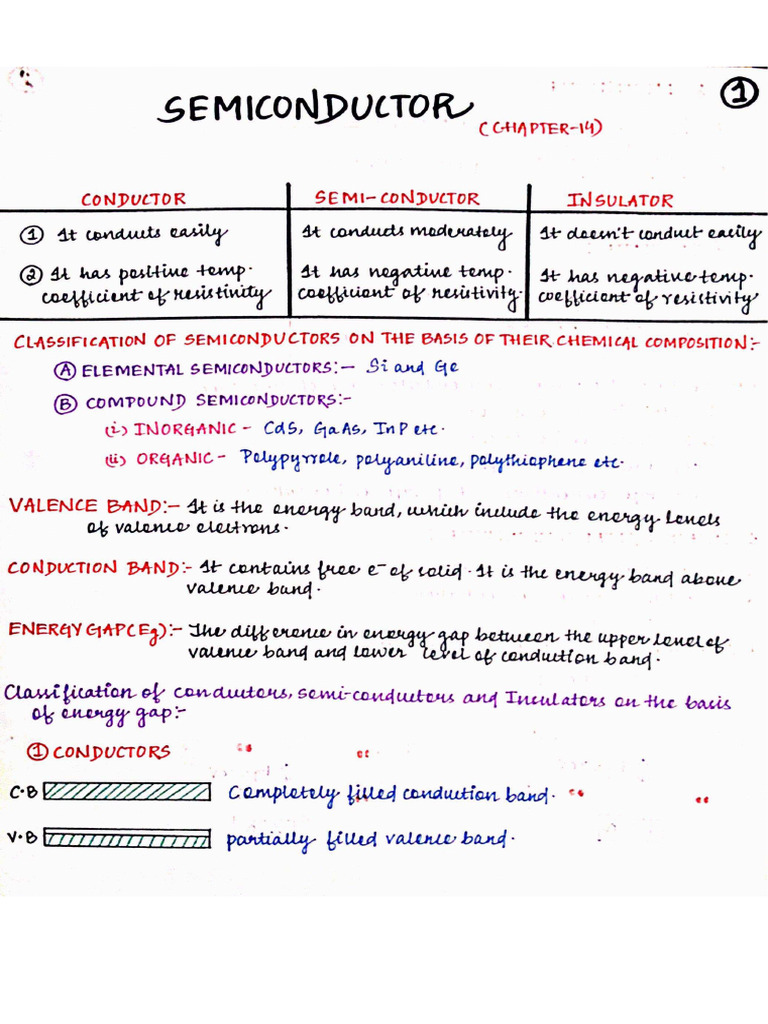 ①
SEMICONDUCTOR
(CHAPTER-14)
CONDUCTOR SEMI-CONDUCTOR INSULATOR
① It conducts easily It conducts moderately It doesn't conduct easily
② It has positive temp. It has negative temp. It has negative temp.
coefficient of resistivity coefficient of resistivity. coefficient of resistivity
CLASSIFICATION OF SEMICONDUCTORS ON THE BASIS OF THEIR CHEMICAL COMPOSITION:-
Ⓐ ELEMENTAL SEMICONDUCTORS:- Si and Ge
Ⓑ COMPOUND SEMICONDUCTORS:-
(i) INORGANIC - CdS, GaAs, InP etc.
(ii) ORGANIC - Polypyrrole, polyaniline, polythiophene etc.
VALENCE BAND:- It is the energy band, which include the energy levels
of valence electrons.
CONDUCTION BAND:- It contains free e⁻ of solid. It is the energy band above
valence band.
ENERGY GAP(Eg):- The difference in energy gap between the upper level of
valence band and lower level of conduction band.
Classification of conductors, semi-conductors and Insulators on the basis
of energy gap:-
① CONDUCTORS
C.B Completely filled conduction band.
V.B partially filled valence band.